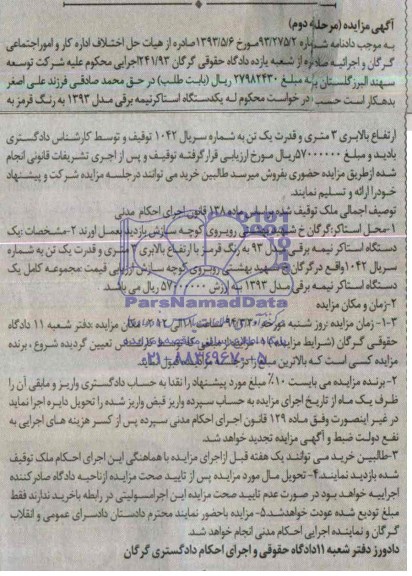 آگهی مزایده (مرحله دوم)
به موجب دادنامه شماره ۹۳/۲۷۵/۲مورخ ۱۳۹۳/۵/۶صادره از هیات حل اختلاف اداره کار و اموراجتماعی
گرگان و اجرائیه صادره از شعبه یازده دادگاه حقوقی گرگان ۲۴۱/۹۳اجرایی محکوم علیه شرکت توسعه
سهند البرز گلستان به مبلغ ۲۷۹۸۲۴۳۰ ریال (بابت طلب) در حق محمد صادقی فرزند علی اصغر
بدهکار است حسب درخواست محکوم له یکدستگاه استاکرنیمه برقی مدل ۱۳۹۳ به رنگ قرمز به
ارتفاع بالابری ۳ متری و قدرت یک تن به شماره سریال ۱۰۴۲ توقیف و توسط کارشناس دادگستری
بادید و مبلغ ۵۷۰۰۰۰۰۰ریال مورخ ارزیابی قرار گرفته توقیف و پس از اجری تشریفات قانونی انجام
شده ازطریق مزایده حضوری بفروش میرسد طالبین خرید می توانند درجلسه مزایده شرکت و پیشنهاد
خودرا ارائه و تسلیم نمایند.
توصیف اجمالی ملک توقیف شده برابر ماده ۱۳۸ قانون اجرای احکام مدنی
۱-محل استاکر:گرگان خ شهید بهشتی روبروی کوچه سازش بازدید بعمل اورند ۲-مشخصات :یک
دستگاه استاکر نیمه برقی مدل ۹۳ به رنگ قرمز با ارتفاع بالابری ۳ متری و قدرت یک تن به شماره
سریال ۱۰۴۲واقع درگرگان خ شهید بهشتی روبروی کوچه سازش ارزیابی قیمت :مجموعه کامل یک
دستگاه استاکر نیمه برقی مدل ۱۳۹۳ به ارزش ۵۷۰۰۰۰۰۰ ریال می باشد
۲-زمان و مکان مزایده
۱-۳- زمان مزایده :روز شنبه مورخه ۹۴/۳/۳۰ ساعت ۱۱ الی ۱۲ مکان مزایده :دفتر شعبه ۱۱ دادگاه
حقوقی گرگان (شرایط مزایده) تعیین گردیده شروع ، برنده
مزایده کسی است که بالاترین مبلغ را در جلسه مزایده قبول نماید
۲-برنده مزایده می بایست ۱۰٪ مبلغ مورد پیشنهاد را نقدا به حساب دادگستری واریز و مابقی آن را
ظرف یک ماه از تاریخ اجرای مزایده به حساب سپرده واریز قبض واریز شده را تحویل دایره اجرا نماید
در غیر اینصورت وفق ماده ۱۲۹ قانون اجرای احکام مدنی سپرده پس از کسر هزینه های اجرایی به
نفع دولت ضبط و آگهی مزایده تجدید خواهد شد.
۳-طالبین خرید می توانند یک هفته قبل ازاجرای مزایده با هماهنگی این اجرای احکام ملک توقیف
شده بازدید نمایند.۴- تحویل مال مورد مزایده پس از تایید صحت مزایده ازناحیه دادگاه صادرکننده
اجراییه خواهد بود در صورت عدم تایید صحت مزایده این اجرامسولیتی در رابطه باخرید ندارند فقط
مبلغ تودیع شده عودت خواهدشد.۵- مزایده باحضور نماینده محترم دادستان دادسرای عمومی و انقلاب
گرگان و نماینده اجرایی احکام مدنی انجام خواهد شد.
دادورز دفتر شعبه ۱۱دادگاه حقوقی و اجرای احکام دادگستری گرگان
ParsNamadData
۰۲۱-۸۸۳۴۹۶۷۰-۵